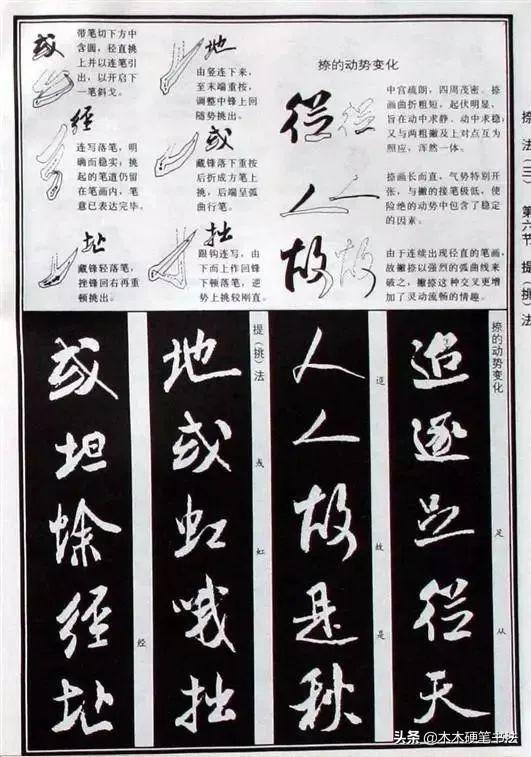 捺法(三) 第六节 提(挑)法
捺的动势变化
從
中宫疏朗，四周茂密。捺
画曲折粗短，起伏明显，
旨在动中求静、动中求稳，
又与两粗撇及上对点互为
照应，浑然一体。
人
捺画长而直，气势特别开
张，与撇的接笔极低，使
险绝的动势中包含了稳定
的因素。
故
由于连续出现径直的笔画，
故撇捺以强烈的弧曲线来
破之，撇捺这种交叉更增
加了灵动流畅的情趣。
或
带笔切下方中
含圆，径直挑
上并以连笔引
出，以开启下
一笔斜戈。
經
连写落笔，明
确而稳实，挑
起的笔道仍留
在笔画内，笔
意已表达完毕。
址
藏锋轻落笔，
挫锋回右再重
顿挑出。
地
由竖连下来，
至末端重按，
调整中锋上回
随势挑出。
或
藏锋落下重按
后折成方笔上
挑，后端呈弧
曲行笔。
拙
跟钩连写，由
下而上作回锋
下顿落笔，逆
势上挑较刚直。
捺的动势变化
追逐足從天
足
从
人人故是秋
故
是
提(挑)法
地或虹哦拙
或
虹
或坦蜍徑址
经
头条 @木木硬笔书法